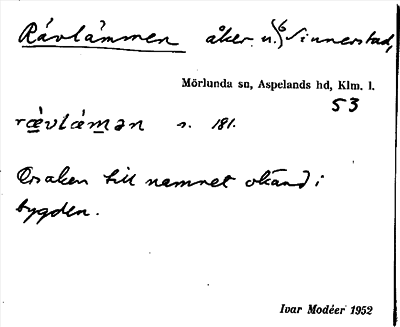 Rávlåmmen åker n. 6 Sinnerstad,
Mörlunda sn, Aspelands hd, Klm. l.
53
s. 181.
Orsaken till namnet okänd i
bygden.
Ivar Modéer 1952